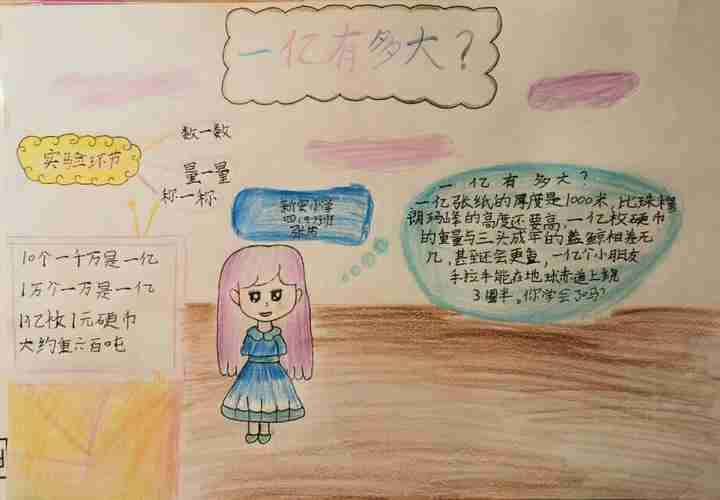 一亿有多大?
实验环节
数一数
量一量
称一称
小学
一亿有多大?
一亿张纸的厚度是1000米,比珠穆
朗玛峰的高度还要高,一亿枚硬币
的重量与三头成年的蓝鲸相差无
几,甚至还会更重,一亿个小朋友
手拉手能在地球赤道上绕
3圈半。你学会了吗?
10个一千万是一亿
1万个一万是一亿
1亿枚1元硬币
大约重六百吨